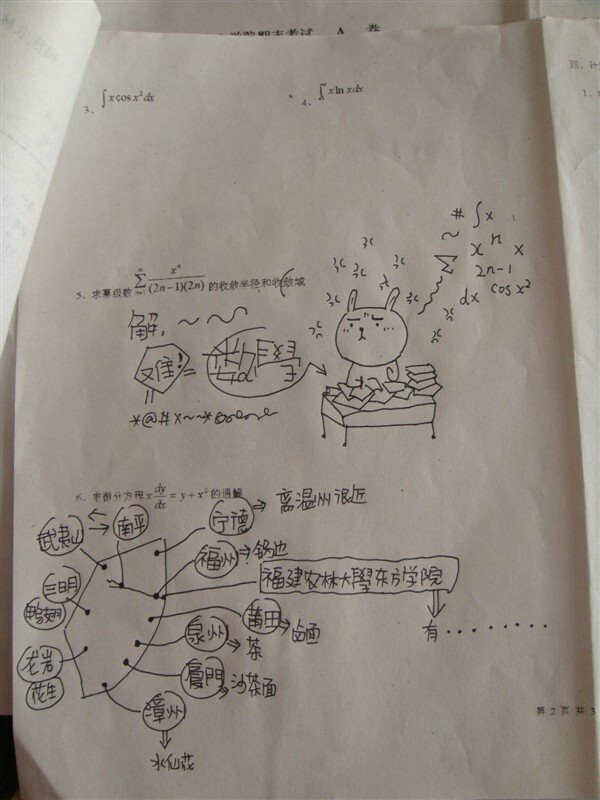 学院期末考试 A 卷
四、计
3、 ∫ x cos x² dx
4、 ∫ x ln x dx
1、
# ∫ x
~ x^n x
Σ 2n-1
dx cos x²
5、求幂级数 ∑_{n=1}^{∞} x^n / (2n-1)(2n) 的收敛半径和收敛域
解:~~~
难! = 數學
*@#x~~*
6、求微分方程 x dy/dx = y + x² 的通解
武夷山 南平 宁德 ⇒ 离温州很近
福州 → 锅边
三明 福建农林大學东方学院
鸭翅 莆田 ⇒ 卤面 有·······
泉州 ⇒ 茶
龙岩 廈門 ⇒ 沙茶面
花生 漳州
水仙花
第 2 页 共 3